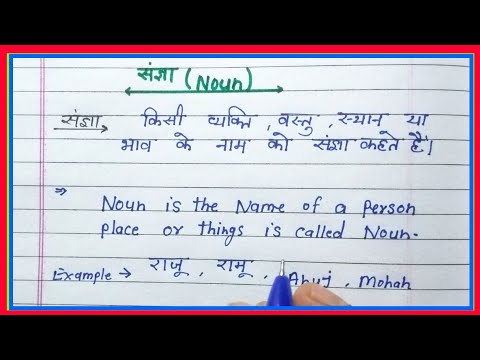 संज्ञा (Noun)
संज्ञा → किसी व्यक्ति, वस्तु, स्थान या
भाव के नाम को संज्ञा कहते हैं।
⇒ Noun is the Name of a person
place or things is called Noun.
Example → राजू, रामू, Anuj, Mohan